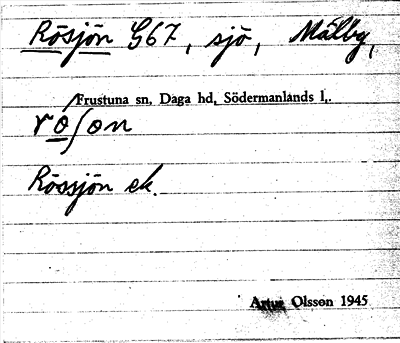 Rösjön G67, sjö, Målby,
Frustuna sn, Daga hd, Södermanlands l.
röʃon
Rössjön ek.
Artur Olsson 1945